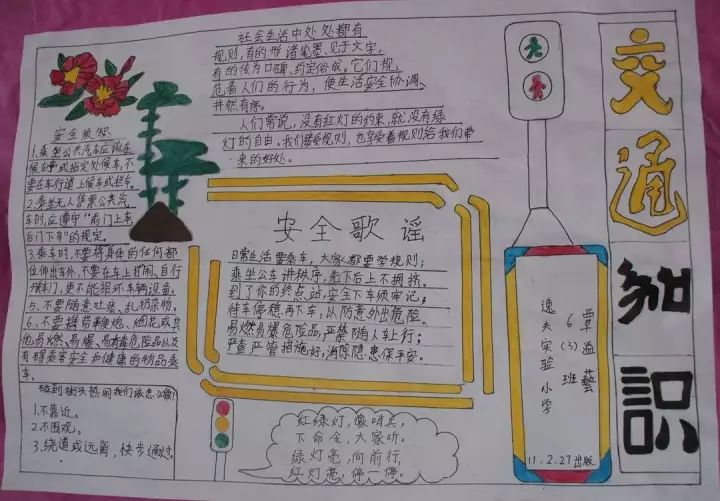 交通知识
社会生活中处处都有
规则,有的形诸笔墨、见于文字,
有的传为口碑、约定俗成。它们规
范着人们的行为,使生活安全协调、
井然有序。
人们常说,没有红灯的约束,就没有绿
灯的自由。我们接受规则,也享受着规则给我们带
来的好处。
安全
1、乘坐公共汽车应该在
候车亭或指定处候车,不
要在车行道上候车或拦车。
2、乘坐无人售票公共汽
车时,应遵守“前门上车
后门下车”的规定。
3、乘车时,不要将身体的任何部
位伸出车外,不要在车上打闹、自行
开车门,更不能损坏车辆设备。
5、不要随意吐痰、乱扔杂物。
6、不要携带鞭炮、烟花或其
他易燃、易爆、易有毒危险品以及
有碍乘客安全和健康的物品乘
车。
碰到街头热闹我们该怎么做?
1.不靠近。
2.不围观。
3.绕道或远离,快步通过。
安全歌谣
日常生活要乘车,大家都要学规则;
乘坐公车讲秩序,先下后上不拥挤。
到了你的终点站,安全下车须牢记;
待车停稳再下车,以防意外出危险。
易燃易爆危险品,严禁随人车上行;
严查严管措施好,消除隐患保平安。
红绿灯,像哨兵,
下命令,大家听。
绿灯亮,向前行,
红灯亮,停一停。
逸夫实验小学
6(3)班
覃溢藝
11.2.27出版